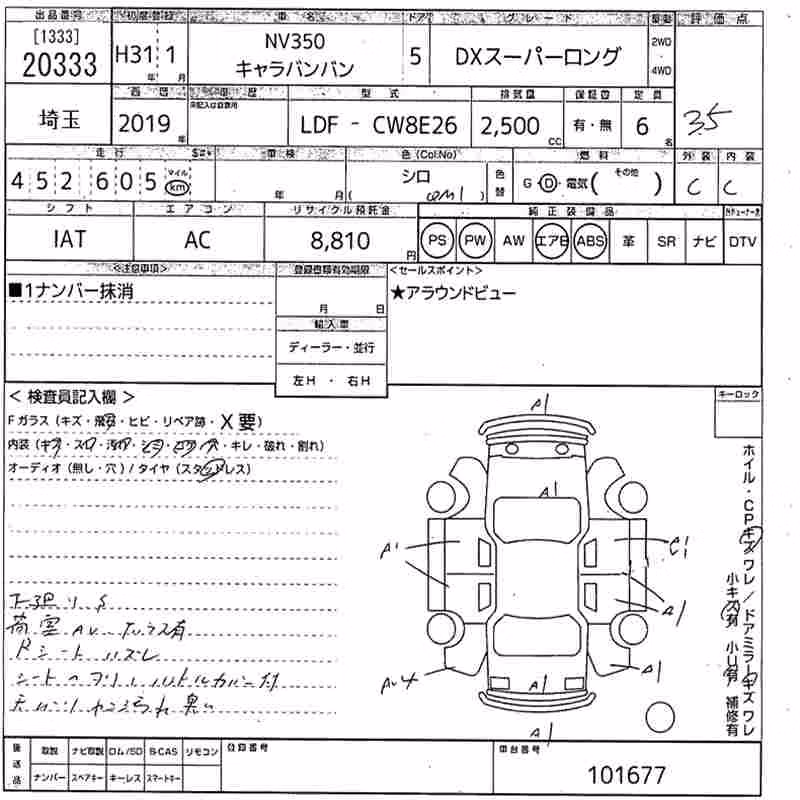 出品番号 初度登録 車名 ドア グレード 駆動 評価点
[1333] 20333 H31年 1月 NV350 キャラバンバン 5 DXスーパーロング 2WD・4WD
西暦 車歴 型式 排気量 保証書 定員
未記入は自家用
埼玉 2019年 LDF - CW8E26 2,500cc 有・無 6名 35
走行 車検 色(Col.No) 燃料 外装 内装
452605 マイル km 年 月 シロ (QM1) 色替 G・D・電気( その他 ) C C
シフト エアコン リサイクル預託金 純正装備品
IAT AC 8,810円 PS PW AW エアB ABS 革 SR ナビ DTV
<注意事項> 登録書類有効期限 <セールスポイント>
■1ナンバー抹消 月 日 ★アラウンドビュー
輸入車
ディーラー・並行
左H ・ 右H
< 検査員記入欄 > キーロック
Fガラス(キズ・飛石・ヒビ・リペア跡・X要)
内装(キズ・スロ・汚れ・シミ・コゲ・穴・キレ・破れ・割れ)
オーディオ(無し・穴)/タイヤ(スタッドレス)
A1
A1
A1
A1
A1
A1
A1
A1
ホイル・CPキズワレ/ドアミラーキズワレ
小キズ有 小U有 補修有
下廻りS
Rシートハズレ
後送品 取説 ナビ取説 ロム/SD B-CAS リモコン 登録番号 車台番号
ナンバー スペアキー キーレス スマートキー 101677